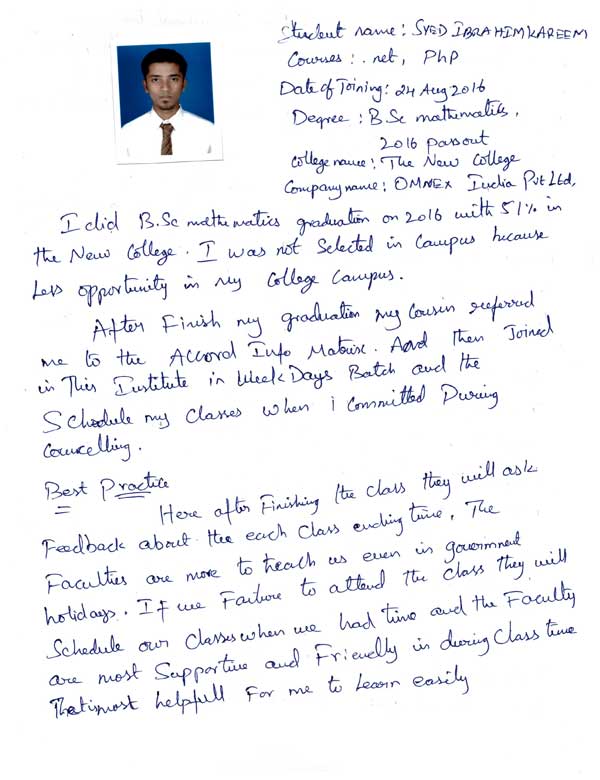 Student name: SYED IBRAHIM KAREEM
Courses: .net, PhP
Date of Joining: 24 Aug 2016
Degree: B.Sc mathematics,
2016 passout
College name: The New College
Company name: OMNEX India Pvt Ltd,
I did B.Sc mathematics graduation on 2016 with 51% in
the New College. I was not Selected in Campus because
Less opportunity in my College Campus.
After Finish my graduation my Cousin referred
me to the Accord Info Matrix. And then Joined
in This Institute in Week Days Batch and the
Schedule my classes when i Committed During
Councelling.
Best Practice
Here after Finishing the class they will ask
Feedback about the each Class ending time. The
Faculties are more to teach us even in government
holidays. If we Failure to attend the class they will
Schedule our Classes when we had time and the Faculty
are most Supportive and Friendly in during Class time
That is most helpfull For me to Learn easily